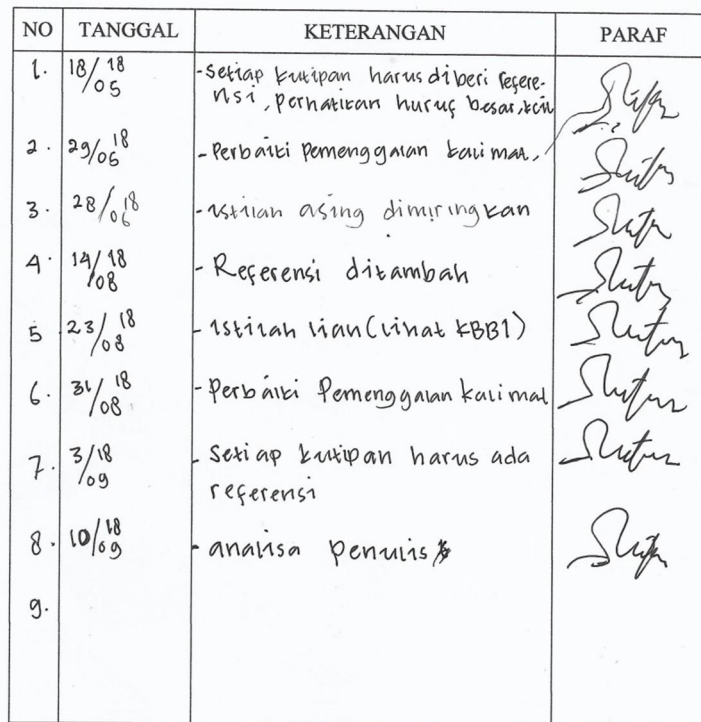 NO TANGGAL KETERANGAN PARAF
1. 18/05 18 - Setiap kutipan harus diberi refere-
nsi, perhatikan huruf besar, kcil
2. 29/06 18 - Perbaiki Pemenggalan kalimat,
3. 28/06 18 - istilah asing dimiringkan
4. 14/08 18 - Referensi ditambah
5 23/08 18 - istilah lian (lihat KBBI)
6. 31/08 18 - Perbaiki Pemenggalan kalimat
7. 3/09 18 - Setiap kutipan harus ada
referensi
8. 10/09 18 - analisa penulis
9.